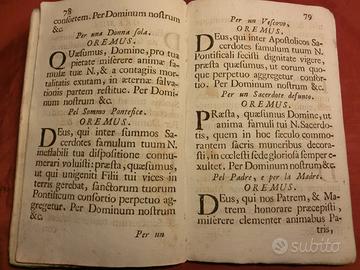 78
consortem. Per Dominum nostrum
&c.
Per una Donna sola.
OREMUS.
QUæsumus, Domine, pro tua
pietate miserére animæ fa-
mulæ tuæ N., & a contagiis mor-
talitatis exutam, in æternæ salva-
tiónis partem restítue. Per Domi-
num nostrum &c.
Pel Sommo Pontefice.
OREMUS.
DEus, qui inter summos Sa-
cerdótes famulum tuum N.
ineffábili tua dispositióne connu-
merári voluísti: præsta, quæsumus,
ut qui unigéniti Fílii tui vices in
terris gerébat, sanctórum tuorum
Pontíficum consórtio perpétuo ag-
gregétur. Per Dominum nostrum
&c.
Per un
79
Per un Vescovo.
OREMUS.
DEus, qui inter Apostólicos Sa-
cerdótes famulum tuum N.
Pontificáli fecísti dignitáte vigére,
præsta quæsumus, ut eorum quo-
que perpétuo aggregétur consór-
tio. Per Dominum nostrum &c.
Per un Sacerdote defunto.
OREMUS.
PRæsta, quæsumus Domine, ut
anima famuli tui N. Sacerdó-
tis, quem in hoc sæculo commo-
rantem sacris munéribus decorá-
sti, in cælesti sede gloriósa semper
exultet. Per Dominum nostrum &c.
Pel Padre, e per la Madre.
OREMUS.
DEus, qui nos Patrem, & Ma-
trem honorare præcepísti,
miserére clementer animábus Pa-
tris,
subito